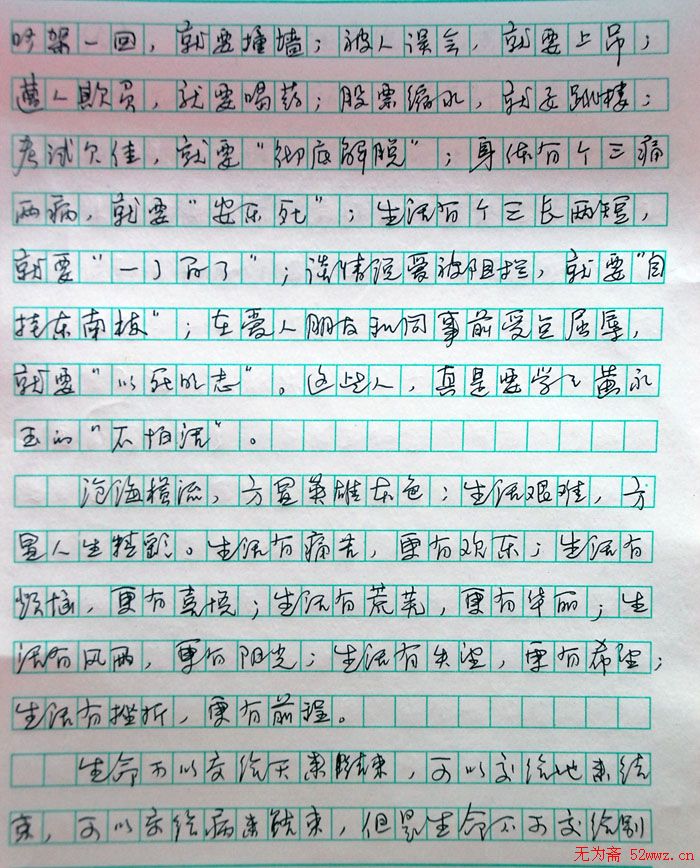 吵架一回，就要撞墙；被人误会，就要上吊；
遭人欺负，就要喝药；股票缩水，就要跳楼；
考试欠佳，就要“彻底解脱”；身体有个三痛
两病，就要“安乐死”；生活有个三长两短，
就要“一了百了”；谈情说爱被阻拦，就要“自
挂东南枝”；在爱人朋友和同事前受点屈辱，
就要“以死明志”。这些人，真是要学学黄永
玉的“不怕活”。
沧海横流，方显英雄本色；生活艰难，方
显人生精彩。生活有痛苦，更有欢乐；生活有
烦恼，更有喜悦；生活有荒芜，更有华丽；生
活有风雨，更有阳光；生活有失望，更有希望；
生活有挫折，更有前程。
生命可以交给天来结束，可以交给地来结
束，可以交给病来结束，但是生命不可交给别
无为斋 52wwz.cn